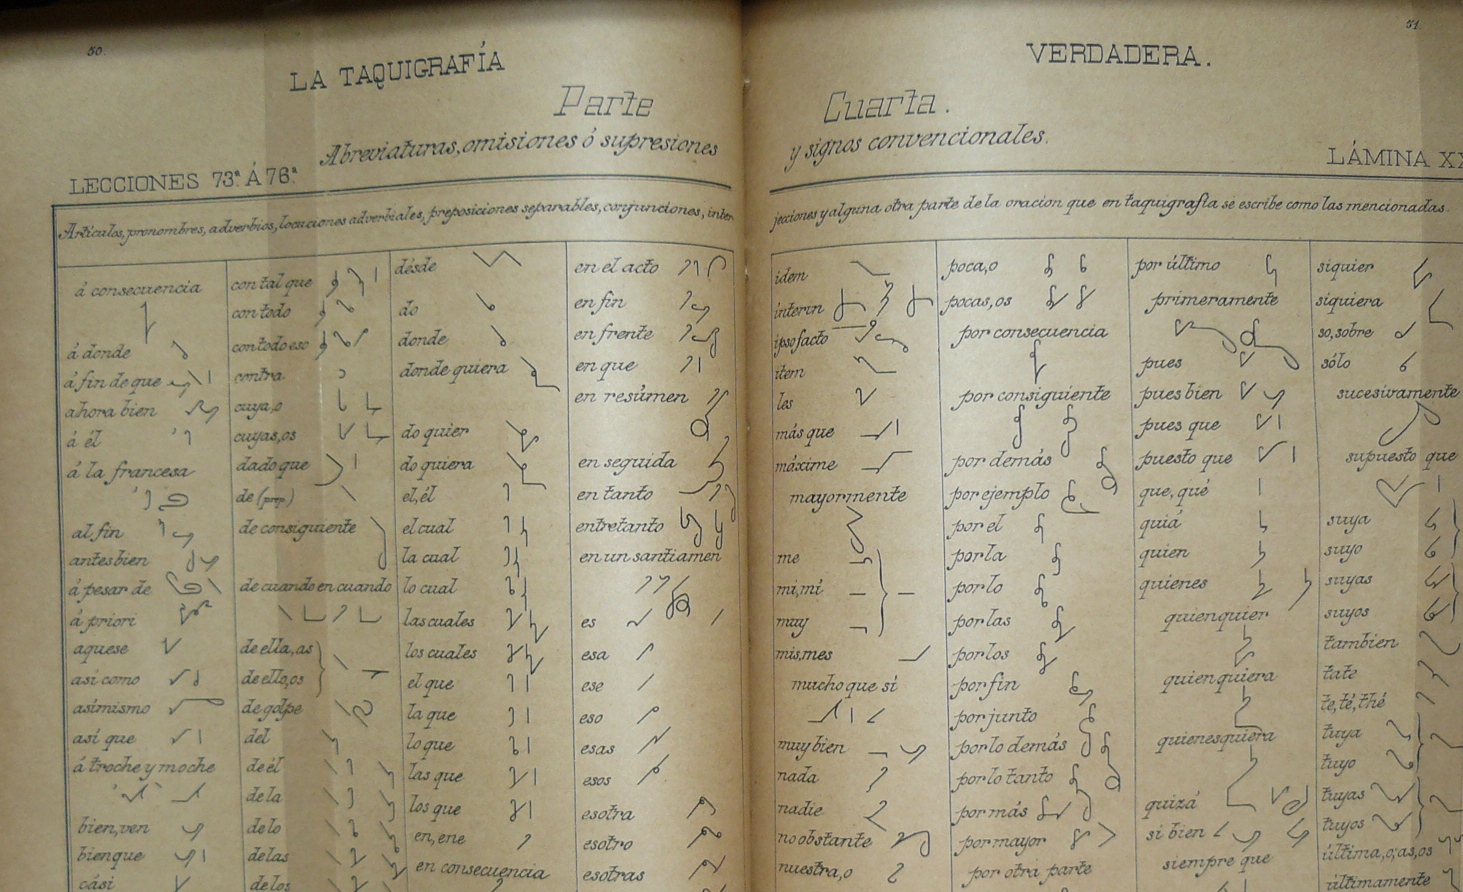 50.
LA TAQUIGRAFÍA
Parte
Abreviaturas, omisiones ó supresiones
LECCIONES 73ª Á 76ª
Artículos, pronombres, adverbios, locuciones adverbiales, preposiciones separables, conjunciones, inter-
á consecuencia
á donde
á fin de que
ahora bien
á él
á la francesa
al fin
antes bien
á pesar de
á priori
aquese
así como
asimismo
así que
á troche y moche
bien, ven
bien que
cási
con tal que
con todo
con todo eso
contra
cuya, o
cuyas, os
dado que
de (prep.)
de consiguiente
de cuando en cuando
de ella, as
de ello, os
de golpe
del
de él
de la
de lo
de las
de los
désde
do
donde
donde quiera
do quier
do quiera
el, él
el cual
la cual
lo cual
las cuales
los cuales
el que
la que
lo que
las que
los que
en, ene
en consecuencia
en el acto
en fin
en frente
en que
en resúmen
en seguida
en tanto
entretanto
en un santiamen
es
esa
ese
eso
esas
esos
esotra
esotro
esotras
51
VERDADERA.
Cuarta.
y signos convencionales.
LÁMINA XX
jecciones y alguna otra parte de la oracion que en taquigrafía se escribe como las mencionadas.
idem
ínterin
ipso facto
item
les
más que
máxime
mayormente
me
mi, mí
muy
mis, mes
mucho que sí
muy bien
nada
nadie
no obstante
nuestra, o
poca, o
pocas, os
por consecuencia
por consiguiente
por demás
por ejemplo
por el
por la
por lo
por las
por los
por fin
por junto
por lo demás
por lo tanto
por más
por mayor
por otra parte
por último
primeramente
pues
pues bien
pues que
puesto que
que, qué
quiá
quien
quienes
quienquier
quienquiera
quienesquiera
quizá
si bien
siempre que
siquier
siquiera
so, sobre
sólo
sucesivamente
supuesto que
suya
suyo
suyas
suyos
tambien
tate
te, té, thé
tuya
tuyo
tuyas
tuyos
última, o; as, os
últimamente